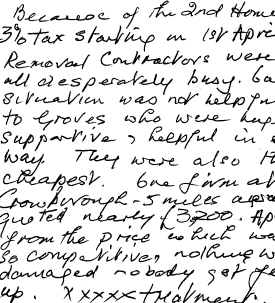 Because of the 2nd Home
3% tax starting on 1st Apri
Removal Contractors were
all desperately busy.
situation was not helpful
to Groves who were
supportive, helpful in
way. They were also th
cheapest. One firm at
Crowborough - 5 miles
quoted nearly £3,200. Ap
from the price which wa
so competitive, nothing w
damaged nobody got
up. xxxxx treatment.